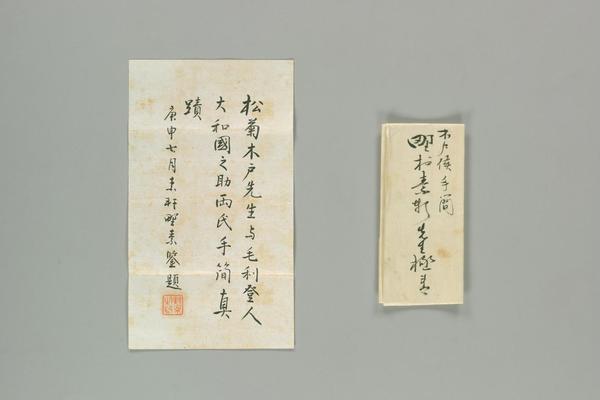 松菊木戸先生与毛利登人
大和國之助両氏手簡真
蹟
庚申七月未軒野素鑒題
木戸侯手簡
野村素軒先生極書